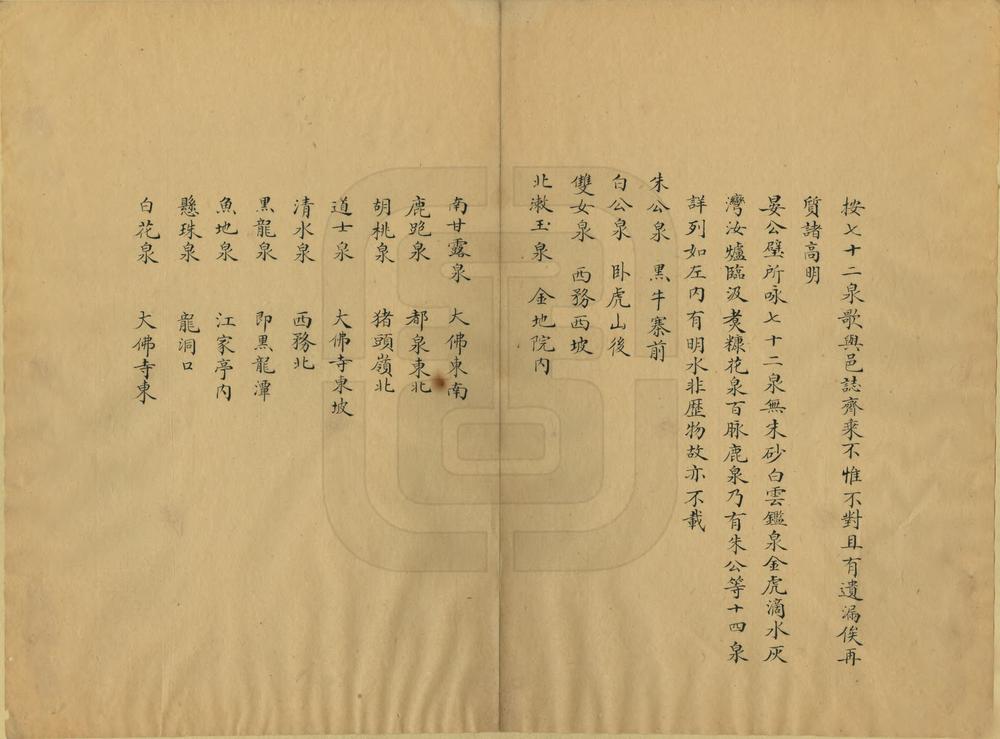 按七十二泉歌與邑誌齊乘不惟不對且有遺漏俟再
質諸高明
晏公璧所咏七十二泉無朱砂白雲鑑泉金虎滴水灰
灣汝爐臨汲煑糠花泉百脉鹿泉乃有朱公等十四泉
詳列如左内有明水非歷物故亦不載
朱公泉 黑牛寨前
白公泉 卧虎山後
雙女泉 西務西坡
北漱玉泉 金地院内
南甘露泉 大佛東南
鹿跑泉 都泉東北
胡桃泉 猪頭嶺北
道士泉 大佛寺東坡
清水泉 西務北
黑龍泉 即黑龍潭
魚地泉 江家亭内
懸珠泉 龍洞口
白花泉 大佛寺東